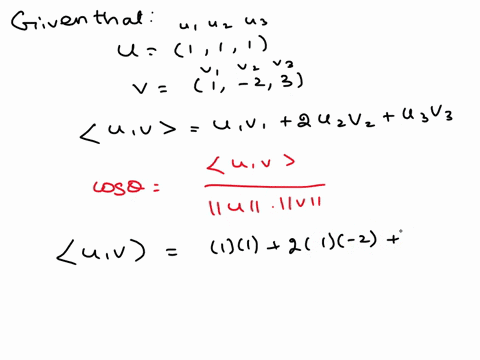 Given that: u₁ u₂ u₃
u = (1, 1, 1)
v₁ v₂ v₃
v = (1, -2, 3)
<u,v> = u₁v₁ + 2u₂v₂ + u₃v₃
cosθ = <u,v> / ||u||.||v||
<u,v) = (1)(1) + 2(1)(-2) +